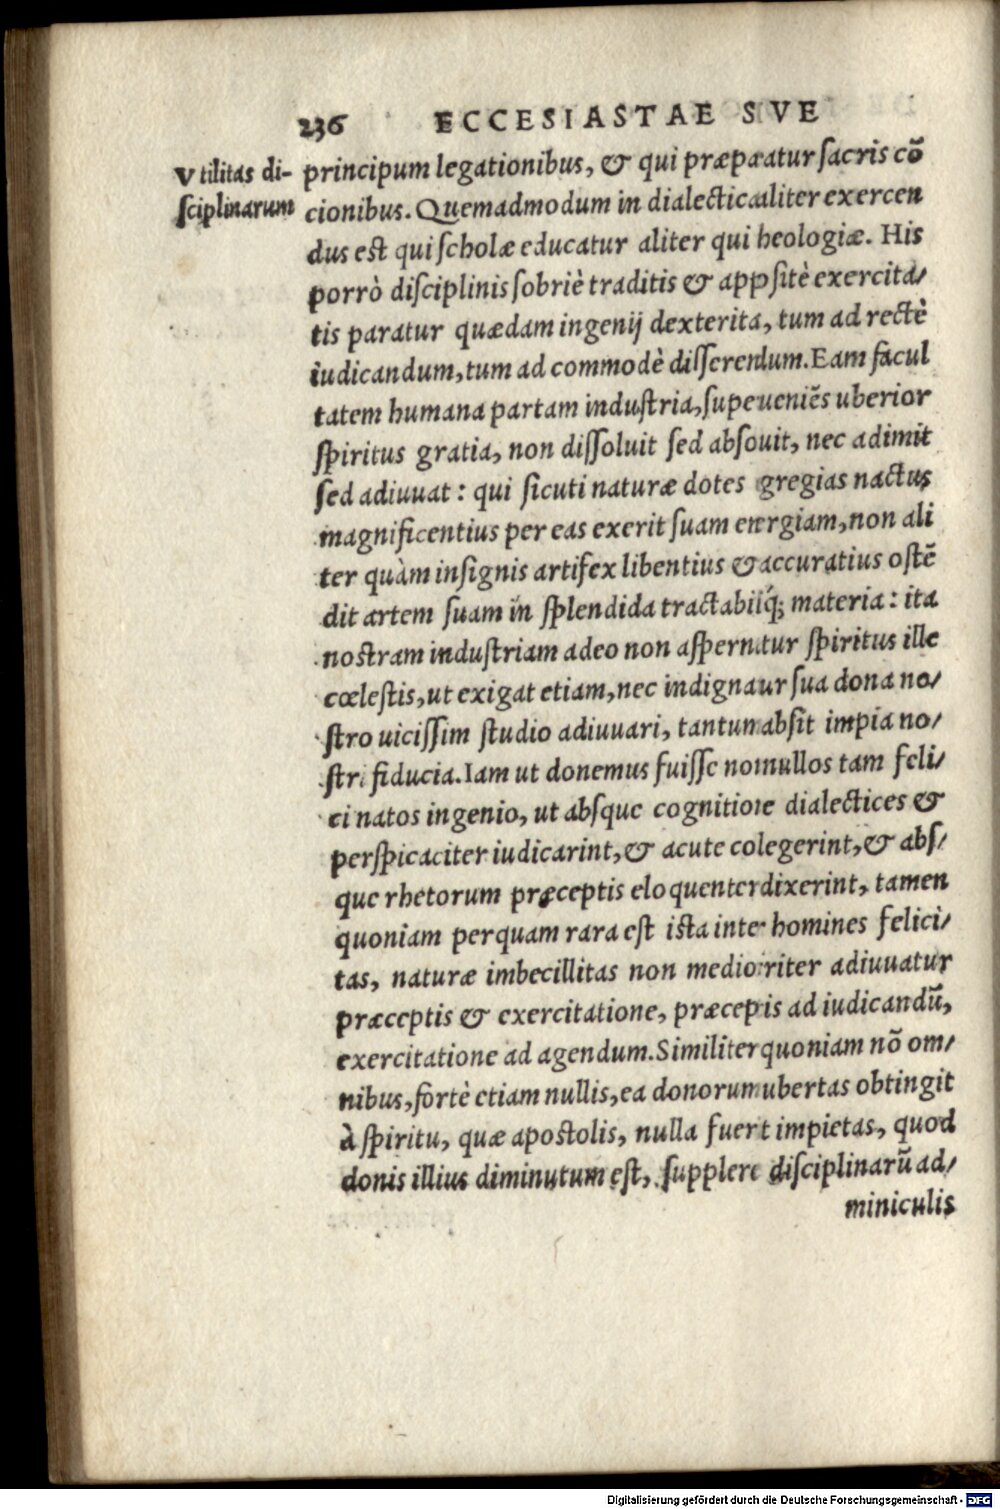 236 ECCESIASTAE SVE
Vtilitas di-
sciplinarum
principum legationibus, & qui præparatur sacris cō
cionibus. Quemadmodum in dialectica aliter exercen
dus est qui scholæ educatur aliter qui heologiæ. His
porrò disciplinis sobriè traditis & appsitè exercita/
tis paratur quædam ingenij dexterita, tum ad rectè
iudicandum, tum ad commodè disserendum. Eam facul
tatem humana partam industria, supeueniēs uberior
spiritus gratia, non dissoluit sed absouit, nec adimit
sed adiuuat: qui sicuti naturæ dotes gregias nactus
magnificentius per eas exerit suam energiam, non ali
ter quàm insignis artifex libentius & accuratius ostē
dit artem suam in splendida tractabiliq́; materia: ita
nostram industriam adeo non aspernatur spiritus ille
cœlestis, ut exigat etiam, nec indignaur sua dona no/
stro uicissim studio adiuuari, tantum absit impia no/
stri fiducia. Iam ut donemus fuisse nonnullos tam feli/
ci natos ingenio, ut absque cognitione dialectices &
perspicaciter iudicarint, & acute colegerint, & abs/
que rhetorum præceptis eloquenter dixerint, tamen
quoniam perquam rara est ista inter homines felici/
tas, naturæ imbecillitas non mediocriter adiuuatur
præceptis & exercitatione, præcepis ad iudicandū,
exercitatione ad agendum. Similiter quoniam nō om/
nibus, fortè etiam nullis, ea donorum ubertas obtingit
à spiritu, quæ apostolis, nulla fuert impietas, quod
donis illius diminutum est, supplere disciplinarū ad/
miniculis
Digitalisierung gefördert durch die Deutsche Forschungsgemeinschaft - DFG